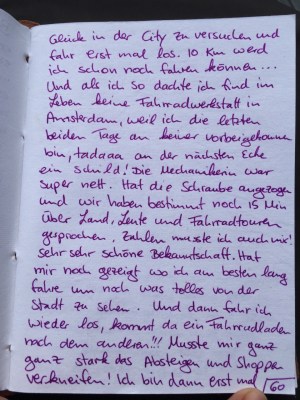 Glück in der City zu versuchen und
fahr erst mal los. 10 Km werd
ich schon noch fahren können...
Und als ich so dachte ich find im
Leben keine Fahrradwerkstatt in
Amsterdam, weil ich die letzten
beiden Tage an keiner vorbeigekommen
bin, tadaaa an der nächsten Ecke
ein Schild! Die Mechanikerin war
super nett. Hat die Schraube angezogen
und wir haben bestimmt noch 15 Min
über Land, Leute und Fahrradtouren
gesprochen. Zahlen musste ich auch nix!
Sehr sehr schöne Bekanntschaft. Hat
mir noch gezeigt wo ich am besten lang
fahre um noch was tolles von der
Stadt zu sehen. Und dann fahr ich
wieder los, kommt da ein Fahrradladen
nach dem anderen!!! Musste mir ganz
ganz stark das Absteigen und Shoppen
verkneifen! Ich bin dann erst mal
60